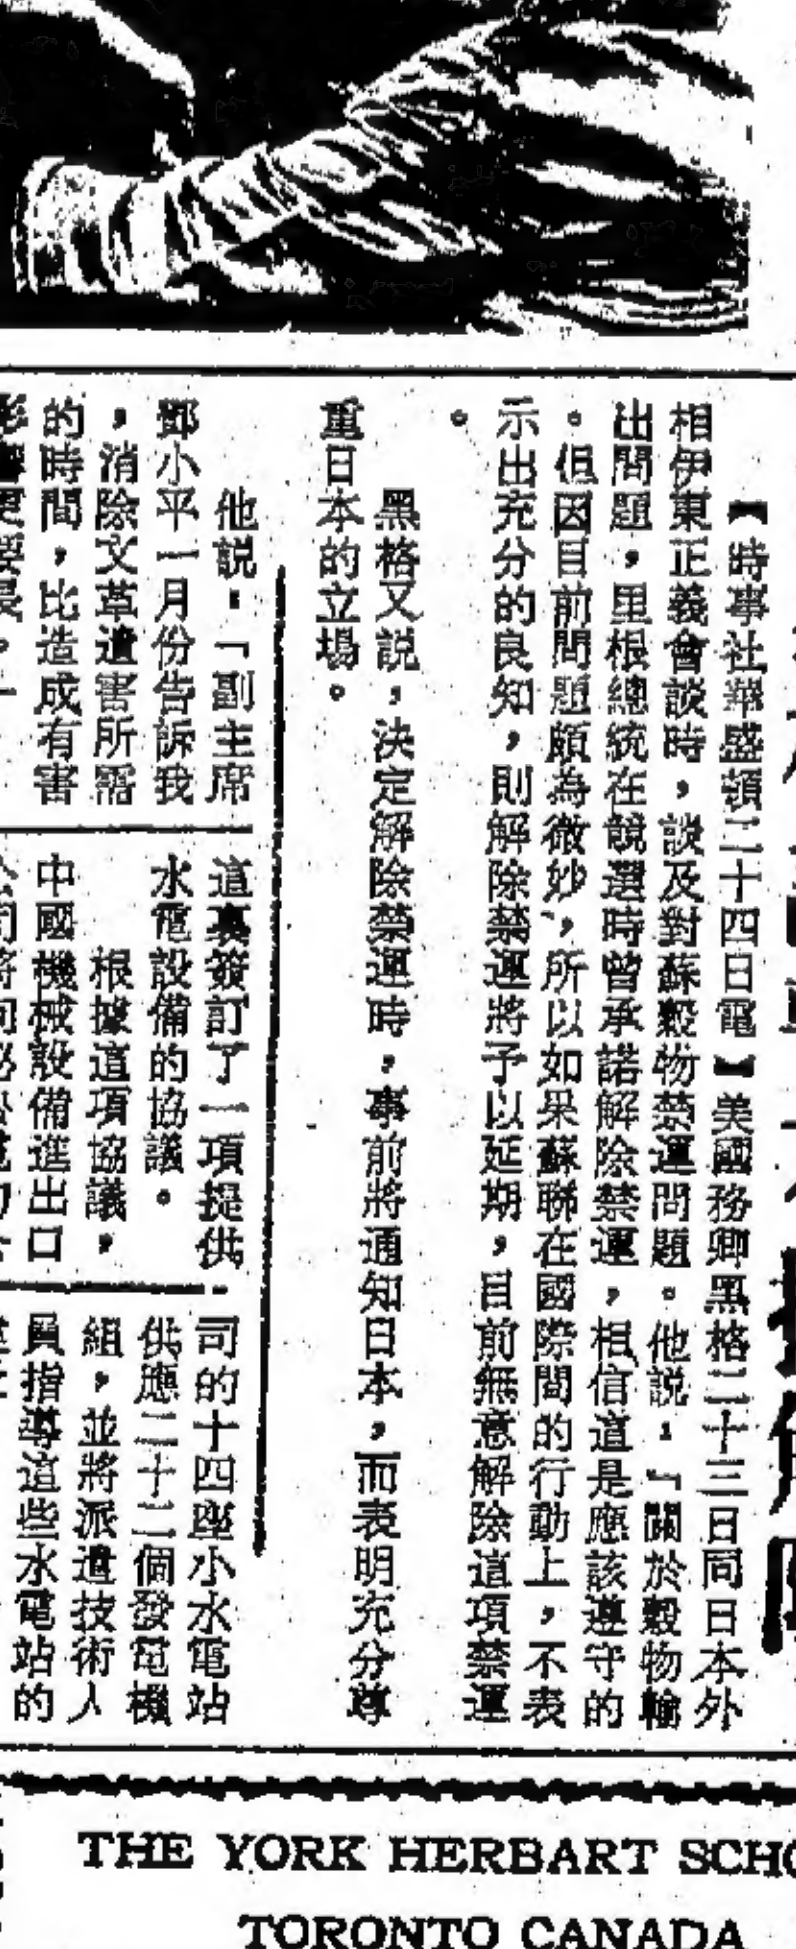 【時事社華盛頓二十四日電】美國務卿黑格二十三日同日本外
相伊東正義會談時，談及對蘇穀物禁運問題。他說：「關於穀物輸
出問題，里根總統在競選時曾承諾解除禁運，相信這是應該遵守的
。但因目前問題頗為微妙，所以如果蘇聯在國際間的行動上，不表
示出充分的良知，則解除禁運將予以延期，目前無意解除這項禁運
。
黑格又說，決定解除禁運時，事前將通知日本，而表明充分尊
重日本的立場。
他說：「副主席
鄧小平一月份告訴我
，消除文革遺害所需
的時間，比造成有害
這裏簽訂了一項提供
水電設備的協議。
根據這項協議，
中國機械設備進出口
司的十四座小水電站
供應二十二個發電機
組，並將派遣技術人
員指導這些水電站的
THE YORK HERBART SCHO
TORONTO CANADA